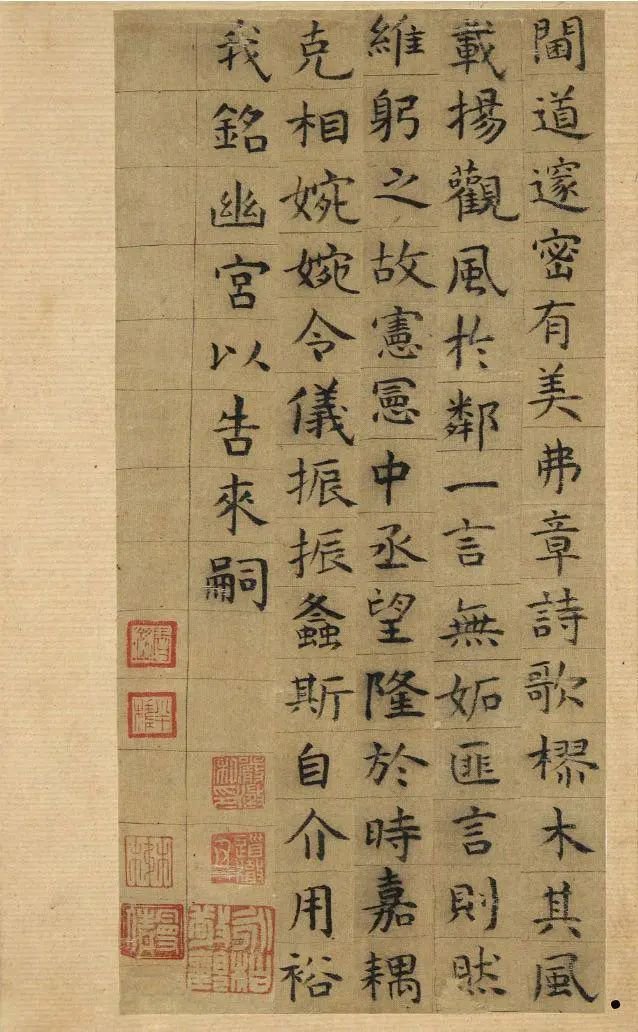 閫道邃密有美弗章詩歌樛木其風
載揚觀風於鄰一言無姤匪言則然
維躬之故憲憲中丞望隆於時嘉耦
克相婉婉令儀振振螽斯自介用裕
我銘幽宮以告來嗣